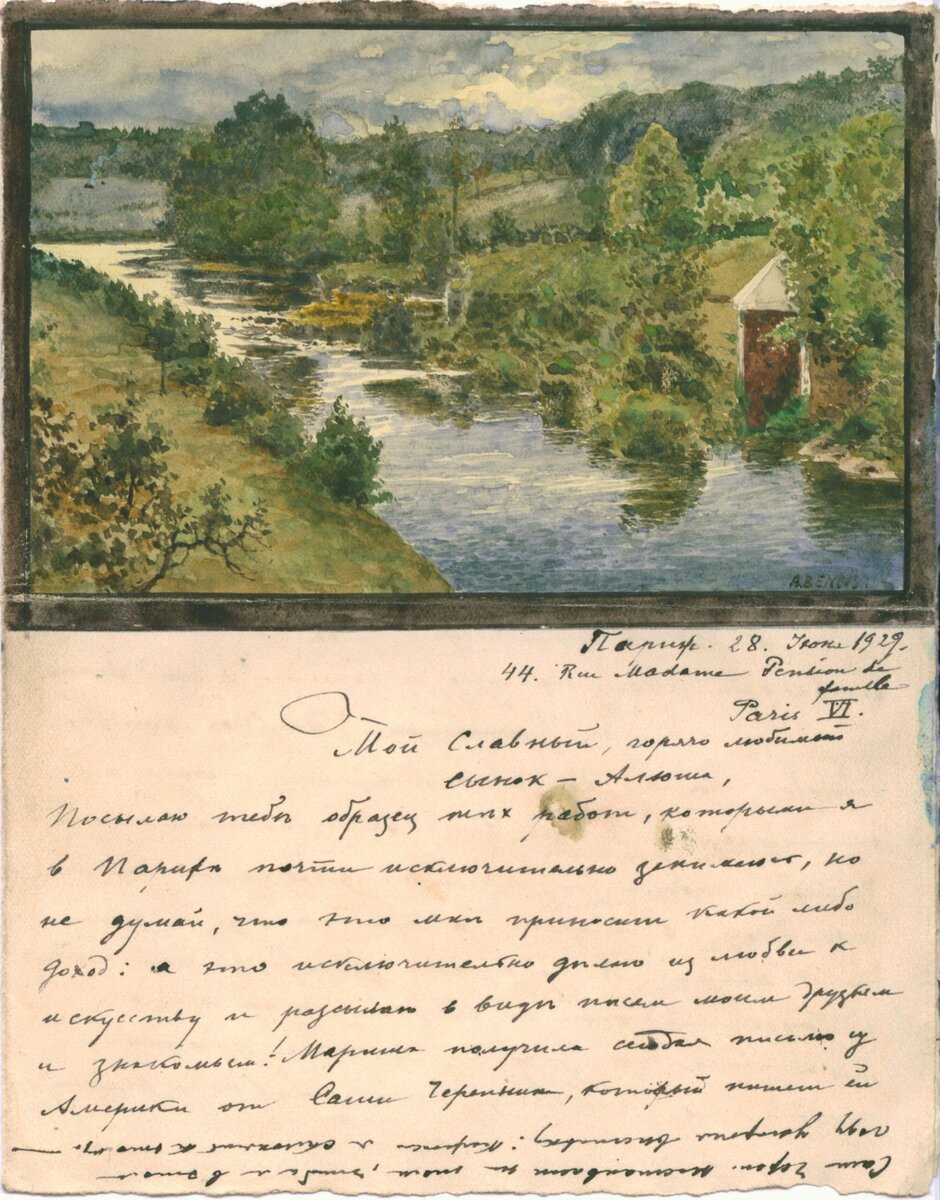 A. BENOIS.
Париж. 28. Июня 1929.
44. Rue Madame Pension de
famille
Paris VI.
Мой Славный, горячо любимый
сынок – Алюша,
Посылаю тебѣ образец тѣх работ, которыми я
в Парижѣ почти исключительно занимаюсь, но
не думай, что это мнѣ приносит какой либо
доход: я это исключительно дѣлаю из любви к
искусству и разсылаю в видѣ писем моим друзьям
и знакомым! Марина получила письмо из
Америки от Саши Черепнина, который пишет ей